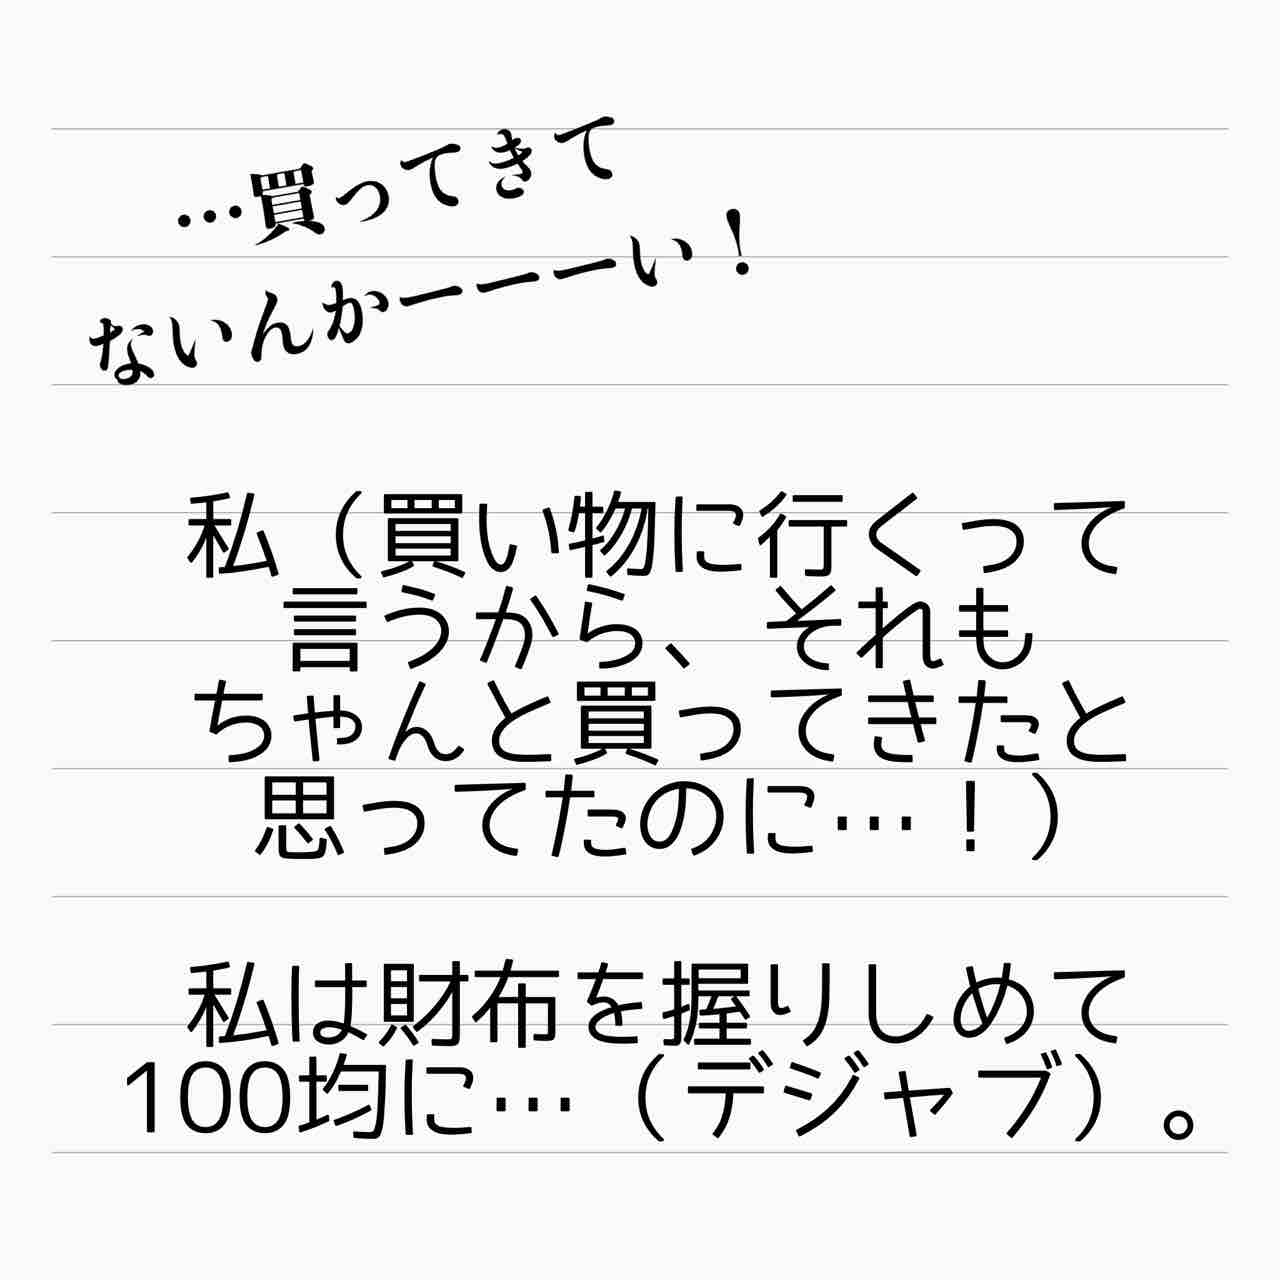 …買ってきて
ないんかーーーい！
私（買い物に行くって
言うから、それも
ちゃんと買ってきたと
思ってたのに…！）
私は財布を握りしめて
100均に…（デジャブ）。